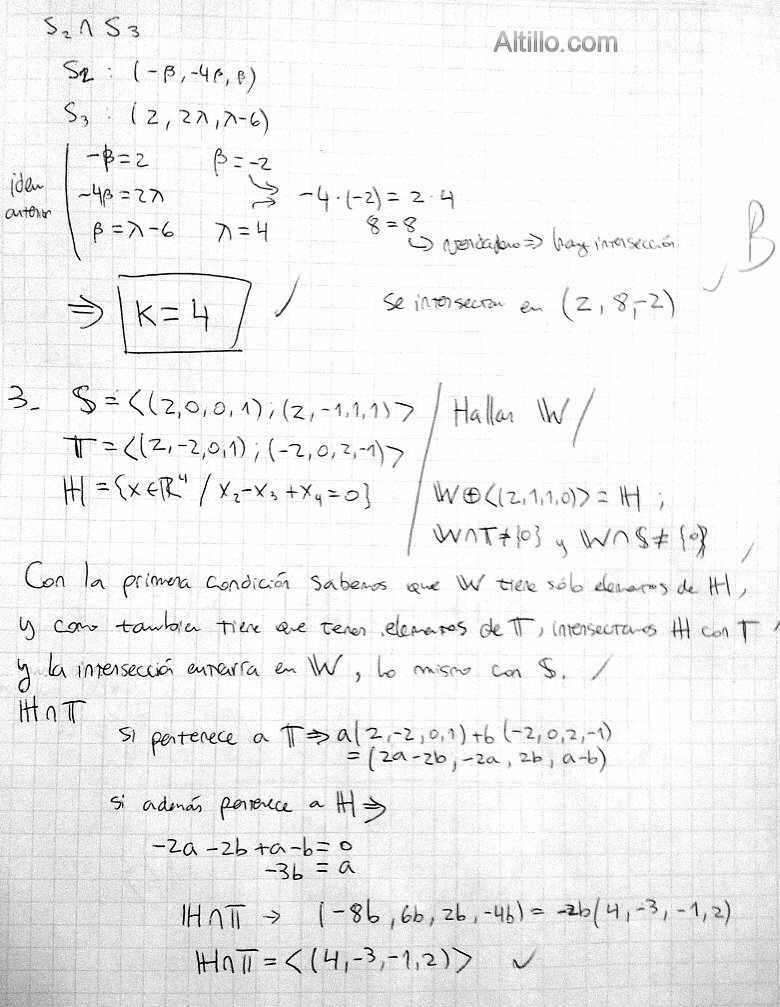 S₂ ∩ S₃
Altillo.com
S₂ : (-β, -4β, β)
S₃ : (2, 2λ, λ-6)
idem anterior
-β = 2    β = -2
-4β = 2λ    -4·(-2) = 2·4
8 = 8
β = λ-6    λ = 4
↳ verdadero ⇒ hay intersección
B
⇒ K = 4 ✓
se intersectan en (2, 8, -2) ✓
3_ 𝕊 = <(2,0,0,1);(2,-1,1,1)> / Hallar 𝕎 /
𝕋 = <(2,-2,0,1);(-2,0,2,-1)>
ℍ = {x∈ℝ⁴ / x₂-x₃+x₄=0}
𝕎⊕<(2,1,1,0)> = ℍ ;
𝕎∩𝕋≠{0} y 𝕎∩𝕊≠{0}
Con la primera condición sabemos que 𝕎 tiene sólo elementos de ℍ,
y como también tiene que tener elementos de 𝕋, intersectamos ℍ con 𝕋
y la intersección entraría en 𝕎, lo mismo con 𝕊. /
ℍ∩𝕋
Si pertenece a 𝕋 ⇒ a(2,-2,0,1)+b(-2,0,2,-1)
= (2a-2b, -2a, 2b, a-b)
si además pertenece a ℍ ⇒
-2a -2b +a -b = 0
-3b = a
ℍ∩𝕋 → (-8b, 6b, 2b, -4b) = -2b(4,-3,-1,2)
ℍ∩𝕋 = <(4,-3,-1,2)> ✓